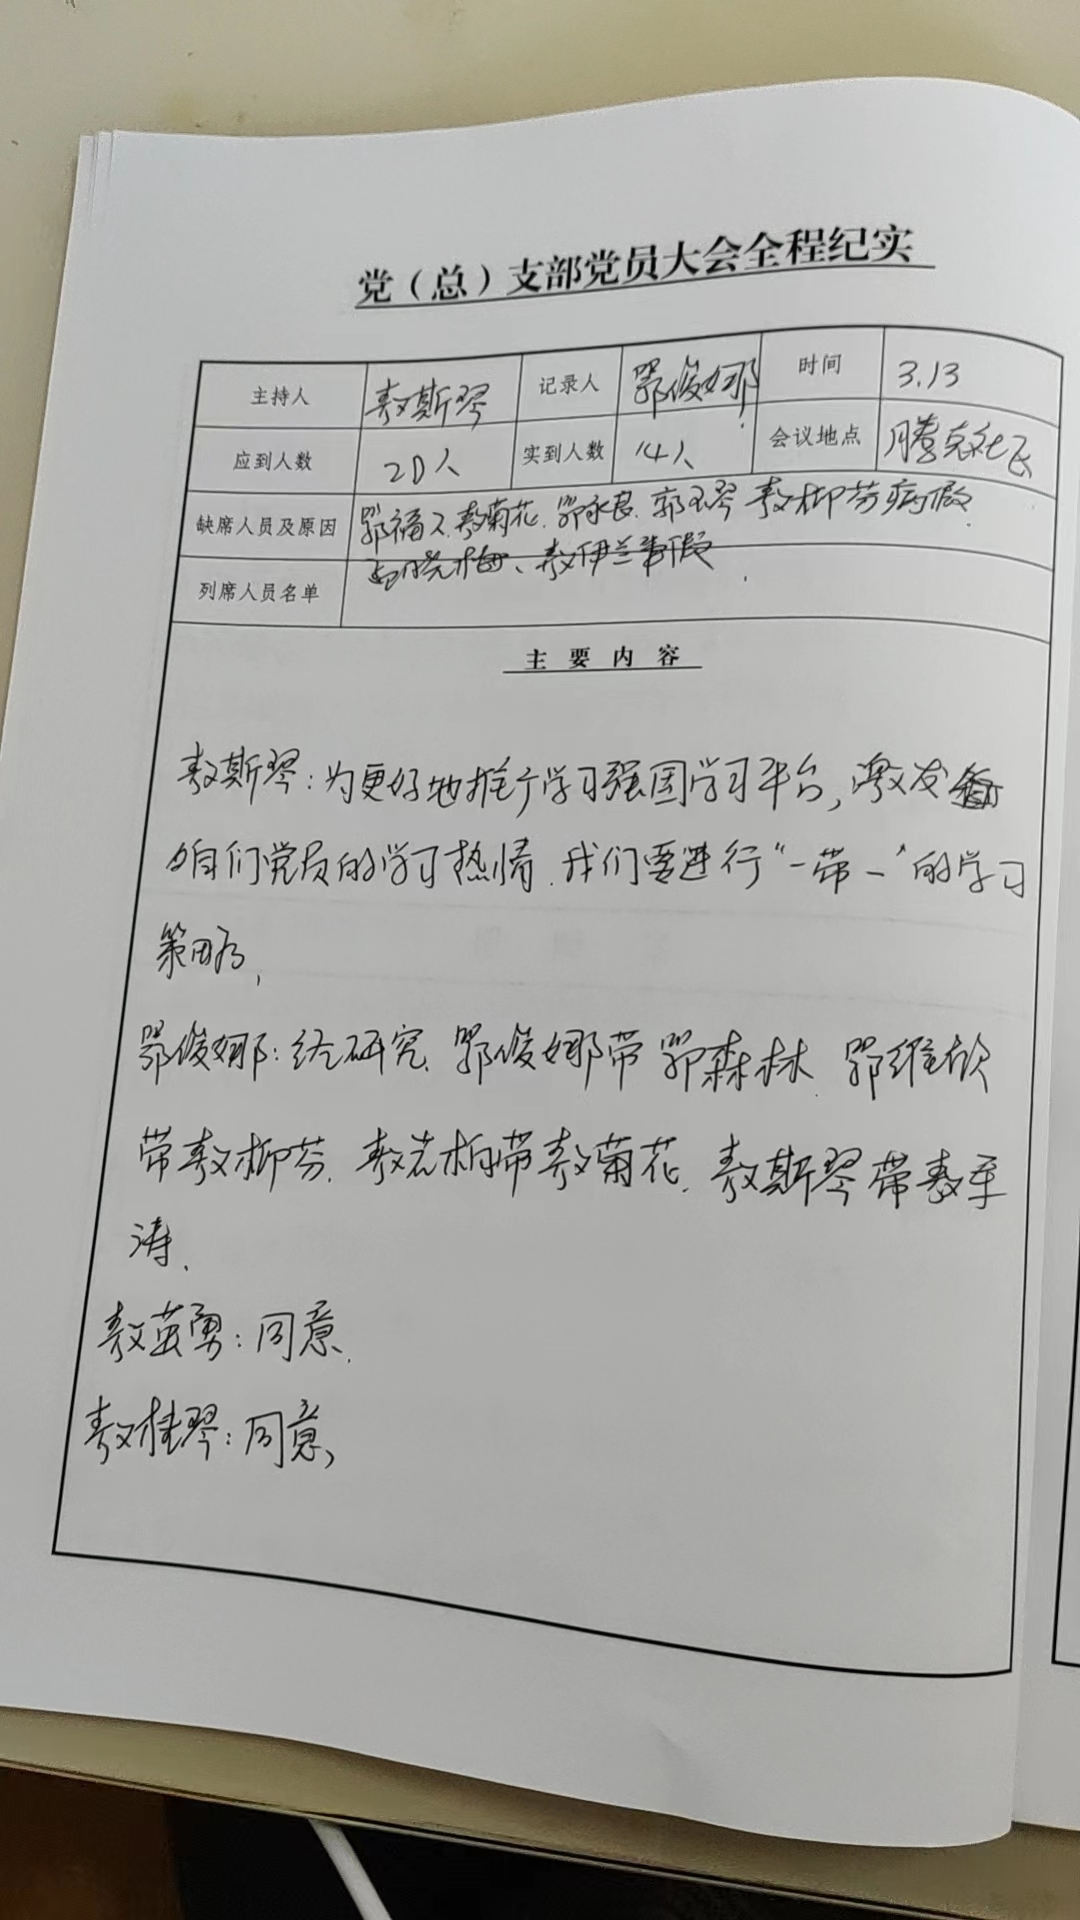 党（总）支部党员大会全程纪实
主持人 敖斯琴 记录人 鄂俊娜 时间 3.13
应到人数 20人 实到人数 14人 会议地点 腾克社区
缺席人员及原因 鄂福 敖菊花、鄂永良、郭玉琴 敖柳芬病假
晓梅、敖伊兰事假
列席人员名单
主要内容
敖斯琴：为更好地推广学习强国学习平台，激发
咱们党员的学习热情、我们要进行“一带一”的学习
策略，
鄂俊娜：经研究、鄂俊娜带鄂森林、鄂维欣
带敖柳芬、敖若柏带敖菊花、敖斯琴带敖军
涛、
敖英勇：同意、
敖桂琴：同意，